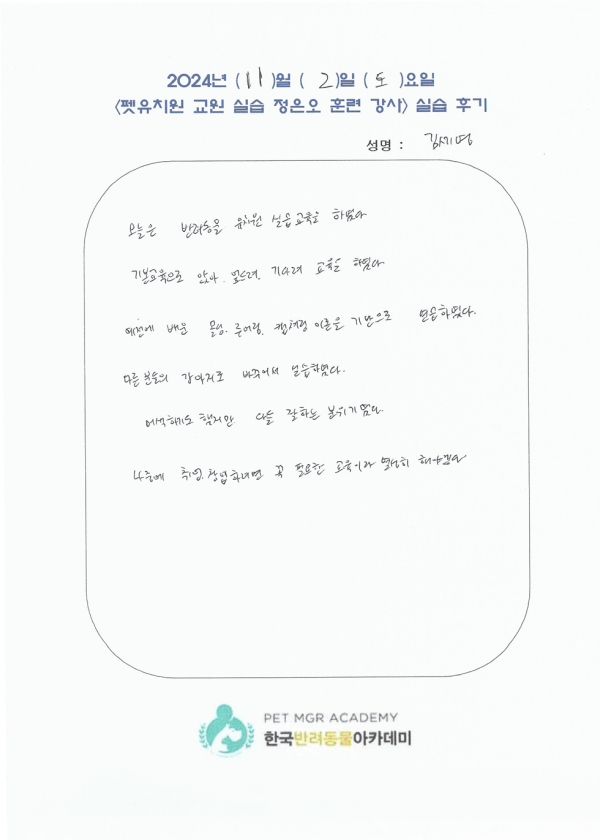 2024년 (11)월 ( 2)일 (토)요일
<펫유치원 교원 실습 정은오 훈련 강사> 실습 후기
성명 : 김세명
오늘은 반려동물 유치원 실습교육을 하였다
기본교육으로 앉아. 엎드려. 기다려 교육을 하였다
예전에 배운 루어링. 캡쳐링 이론을 기반으로 연습하였다.
다른 분들의 강아지로 바꾸어서 실습하였다.
어색하기도 했지만 다들 잘하는 분위기였다.
나중에 취업. 창업하려면 꼭 필요한 교육이라 열심히 해야겠다
PET MGR ACADEMY
한국반려동물아카데미